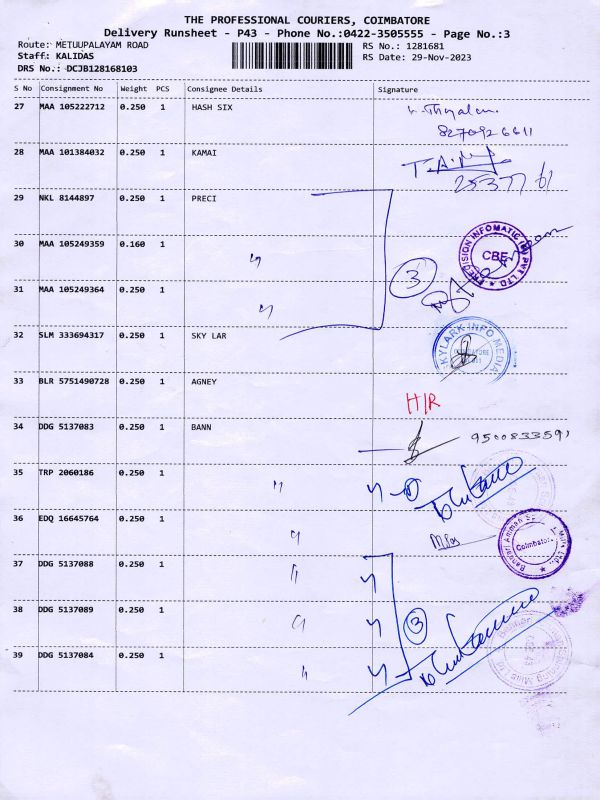 THE PROFESSIONAL COURIERS, COIMBATORE
Delivery Runsheet - P43 - Phone No.:0422-3505555 - Page No.:3
Route: METUUPALAYAM ROAD RS No.: 1281681
Staff: KALIDAS RS Date: 29-Nov-2023
DRS No.: DCJB128168103
S No Consignment No Weight PCS Consignee Details Signature
27 MAA 105222712 0.250 1 HASH SIX
8270926611
28 MAA 101384032 0.250 1 KAMAI
29 NKL 8144897 0.250 1 PRECI
PRECISION INFOMATIC (M) PVT LTD. CBE
30 MAA 105249359 0.160 1 〃
3
31 MAA 105249364 0.250 1 〃
32 SLM 333694317 0.250 1 SKY LAR
SKYLARK INFO MEDIA
33 BLR 5751490728 0.250 1 AGNEY
H/R
34 DDG 5137083 1 BANN
9500833591
35 TRP 2060186 0.250 1 〃
36 EDQ 16645764 0.250 1 〃
Bannari Amman Mills Ltd. Coimbatore
37 DDG 5137088 0.250 1 〃
38 DDG 5137089 0.250 1 〃
3
39 DDG 5137084 0.250 1 〃